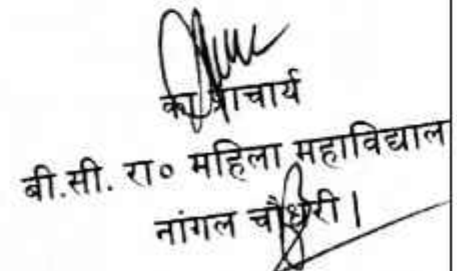 का प्राचार्य
बी.सी. रा० महिला महाविद्याल
नांगल चौधरी।